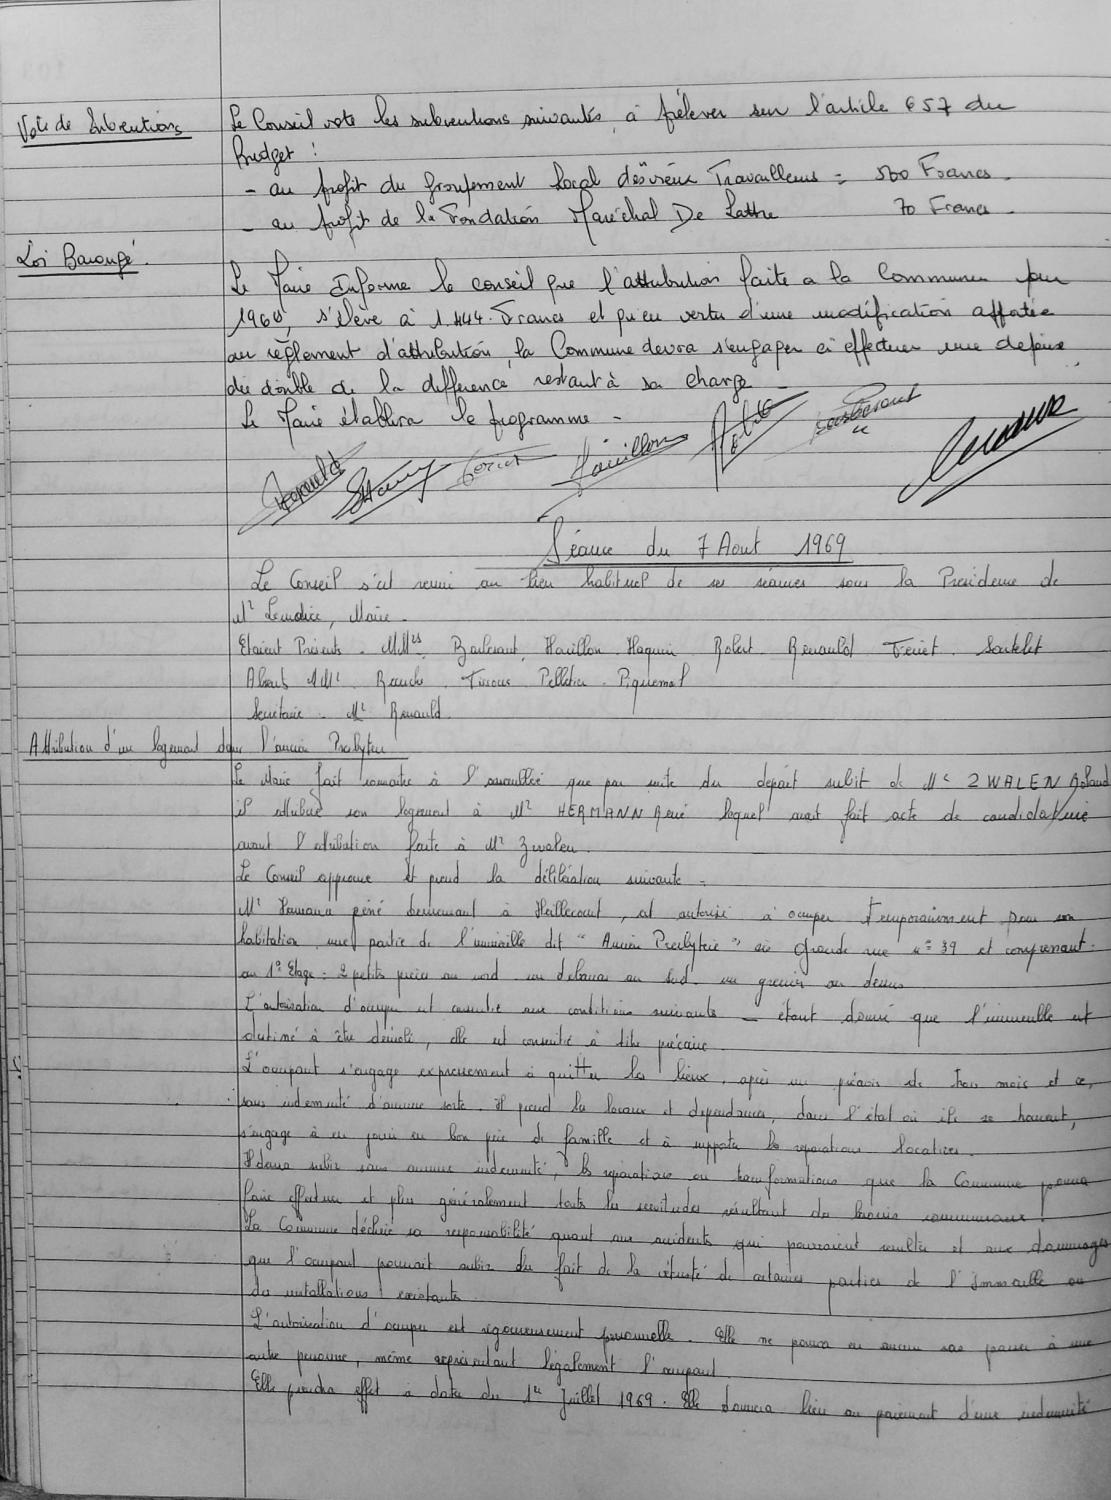 Vote de Subventions
Le Conseil vote les subventions suivantes à prélever sur l'article 657 du
Budget :
- au profit du Groupement local des vieux Travailleurs = 500 Francs -
- au profit de la Fondation Maréchal De Lattre 70 Francs -
Loi Barangé.
Le Maire Informe le conseil que l'attribution faite a la Commune pour
1969, s'élève à 1.444. Francs et qu'en vertu d'une modification apportée
au règlement d'attribution, la Commune devra s'engager à effectuer une dépense
du double de la différence restant à sa charge -
Le Maire établira le programme -
Séance du 7 Aout 1969
Le Conseil s'est reuni au lieu habituel de ses séances sous la Présidence de
Mr Lemoine, Maire.
Etaient Présents - MMrs Houillon. Haquin Robert. Renauld Feriet. Sautelet
Absents MMr. Tissous Pelletier - Piquemal
Secrétaire - Mr Renauld
Attribution d'un logement dans l'ancien Presbytère
Le Maire fait connaitre à l'assemblée que par suite du depart subit de Mr ZWALEN Roland
il attribué son logement à Mr HERMANN René lequel avait fait acte de candidature
avant l'attribution faite à Mr Zwalen.
Le Conseil approuve et prend la délibération suivante =
Mr Hermann réné demeurant à Heillecourt, est autorisé à occuper temporairement pour son
habitation une partie de l'immeuble dit "Ancien Presbytère" sis Grande rue n° 39 et comprenant :
au 1° Etage = 2 petits pièces au nord - un debarras au Sud - un grenier au dessus
L'autorisation d'occuper est consentie aux conditions suivantes - étant donné que l'immeuble est
destiné à être démoli, elle est consentie à titre précaire.
L'occupant s'engage expressement à quitter les lieux, après un préavis de trois mois et ce,
sans indemnité d'aucune sorte. Il prend les locaux et dependances, dans l'état où ils se trouvent,
s'engage à en jouir en bon père de famille et à supporter les reparations locatives.
Il devra subir sans aucune indemnité, les reparations ou transformations que la Commune pourra
faire effectuer et plus généralement toutes les servitudes résultant des besoins communaux.
La Commune décline sa responsabilité quant aux accidents qui pourraient resulter et aux dommages
que l'occupant pourrait subir du fait de la vétusté de certaines parties de l'Immeuble ou
des installations existantes.
L'autorisation d'occuper est rigoureusement personnelle. Elle ne pourra en aucun cas passer à une
autre personne, même représentant légalement l'occupant
Elle prendra effet à dater du 1er Juillet 1969. Elle donnera lieu au paiement d'une indemnité